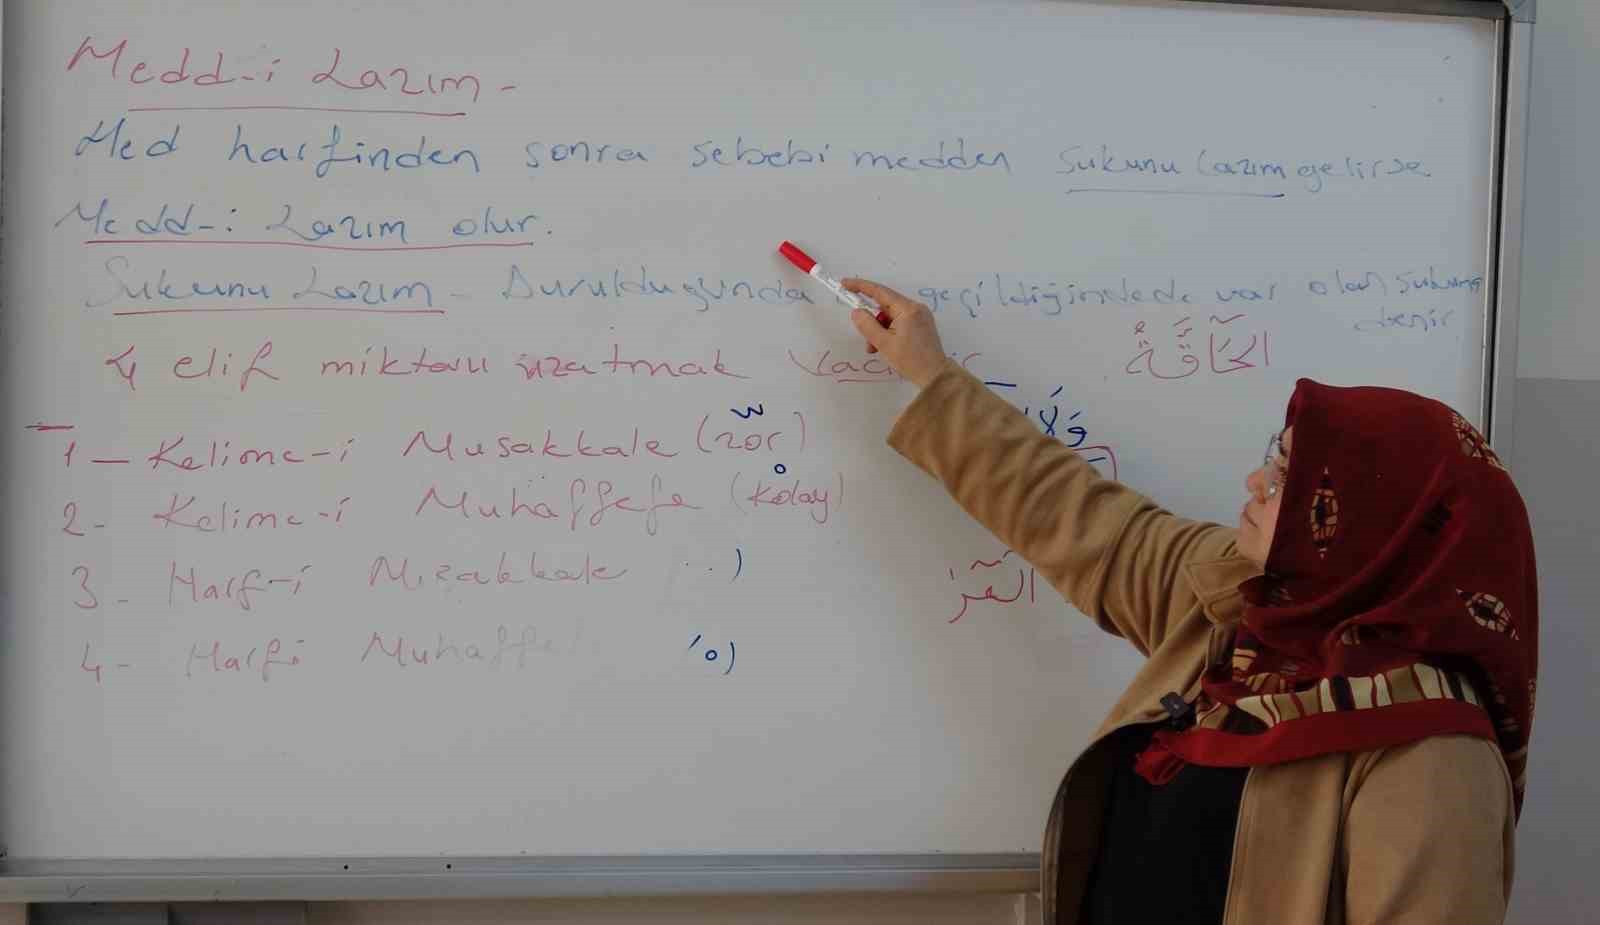 Medd-i Lazım -
Med harfinden sonra sebebi medden sukunu lazım gelirse
Medd-i Lazım olur.
Sukunu Lazım - Durulduğunda geçildiğindede var olan sukuna
denir
الحَآقَّةُ
4 elif miktarı uzatmak
وَلَا
1 - Kelime-i Musakkale (zor)
2 - Kelime-i Muhaffefe (kolay)
3 - Harf-i Mısakkale ..)
4 - Harfi Muhaffe (o)